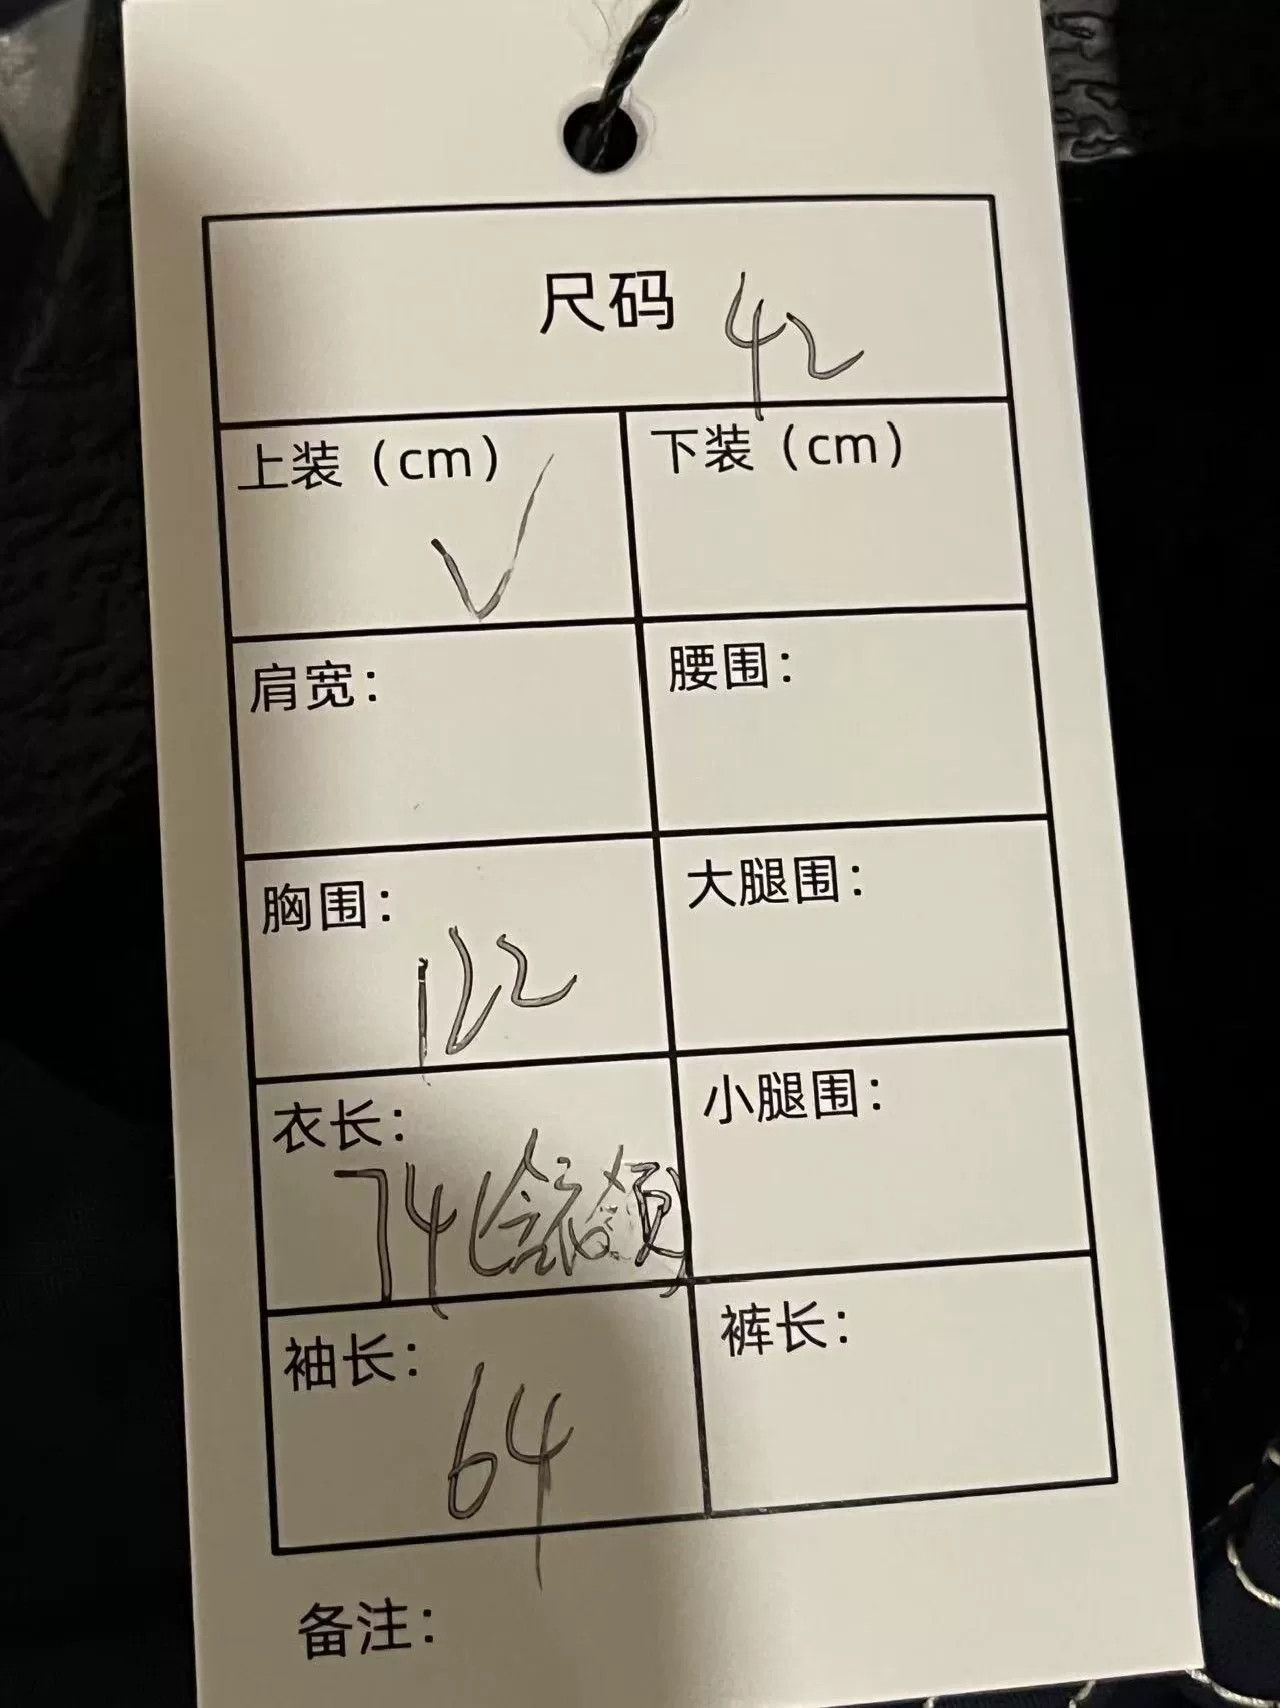 尺码 42
上装（cm） 下装（cm）
√
肩宽： 腰围：
胸围： 大腿围：
122
衣长： 小腿围：
74（含衣领）
袖长： 裤长：
64
备注：